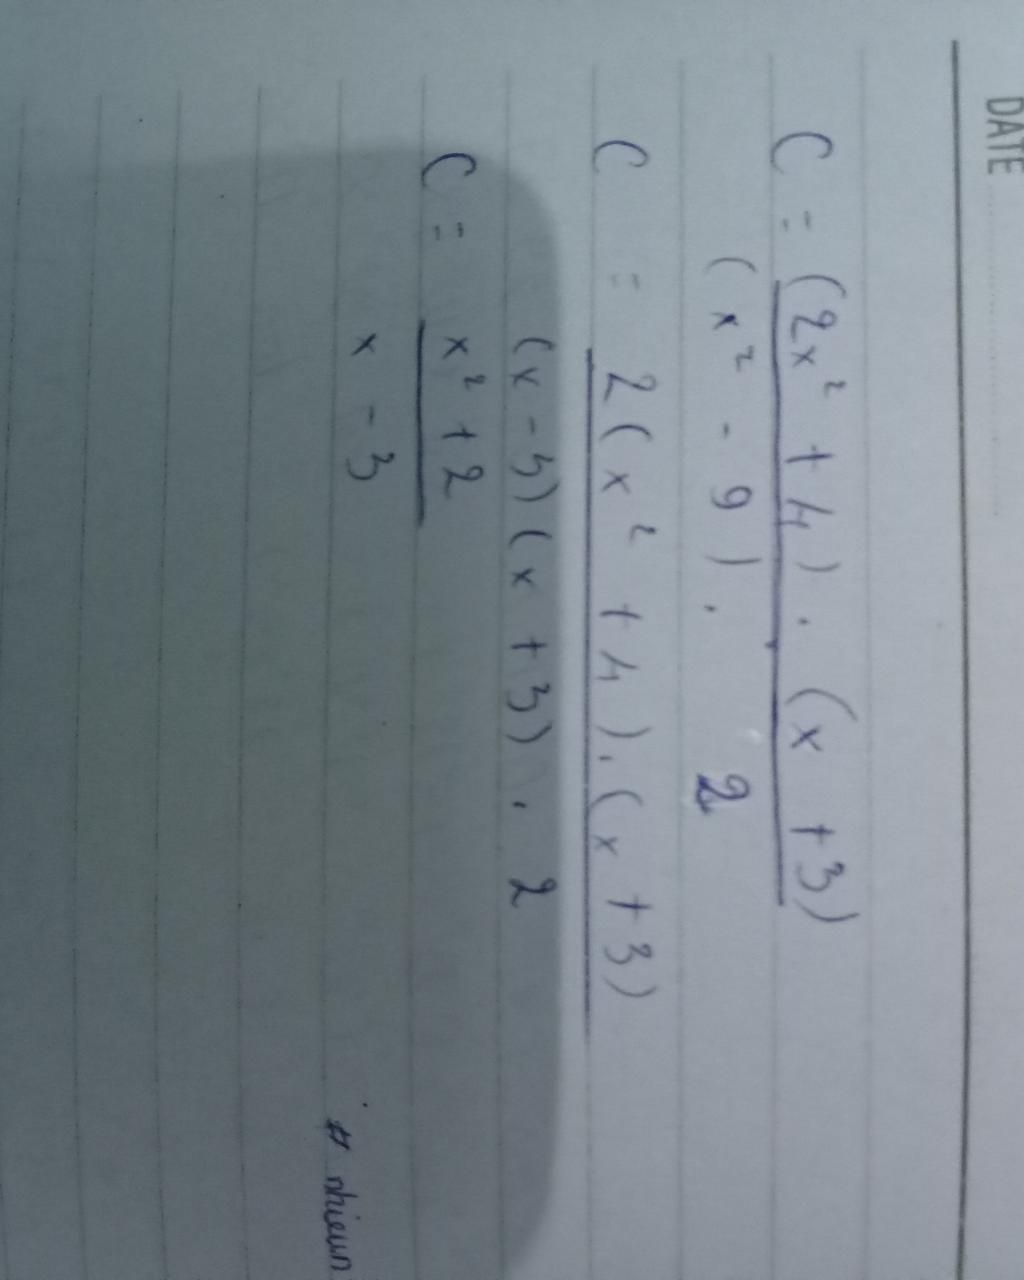 DATE
C = (2x² + 4) . (x + 3)
(x² - 9) . 2
C = 2(x² + 4).(x + 3)
(x - 3)(x + 3) . 2
C = x² + 2
x - 3
# nhieun